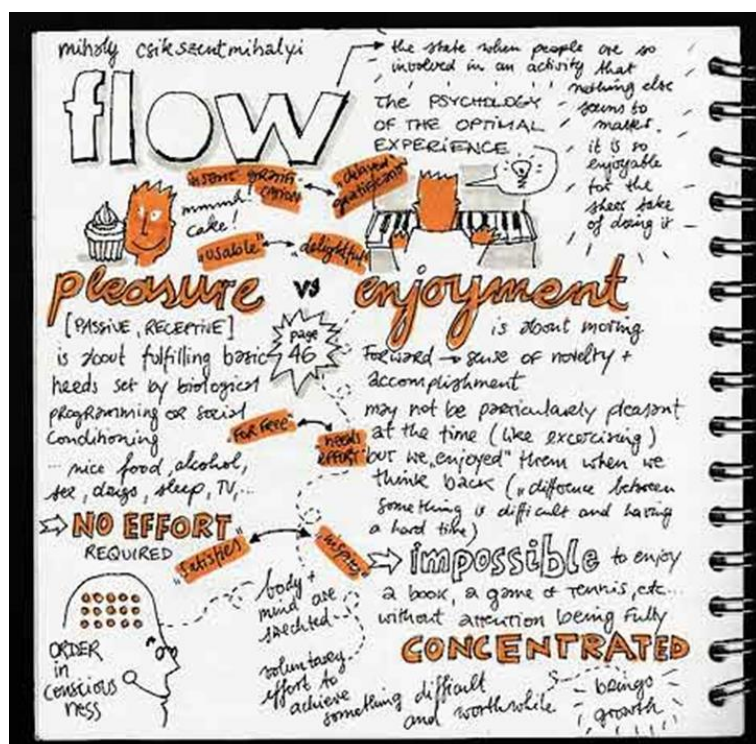 mihaly csikszentmihalyi
flow
the state when people are so
involved in an activity that
nothing else
seems to
matter.
it is so
enjoyable
for the
sheer sake
of doing it
THE PSYCHOLOGY
OF THE OPTIMAL
EXPERIENCE
instant gratifi-
cation
"delayed
gratification"
mmmd!
cake!
"usable"
"delightful"
pleasure
vs
enjoyment
page
46
[PASSIVE, RECEPTIVE]
is about fulfilling basic
needs set by biological
programming or social
conditioning
... nice food, alcohol,
sex, drugs, sleep, TV,...
NO EFFORT
REQUIRED
is about moving
forward → sense of novelty +
accomplishment
may not be particularly pleasant
at the time (like excercising)
but we "enjoyed" them when we
think back ("difference between
something is difficult and having
a hard time)
"FOR FREE"
needs
effort
"satisfies"
"inspires"
impossible to enjoy
a book, a game of tennis, etc...
without attention being fully
CONCENTRATED
ORDER
in
conscious
ness
body +
mind are
stretched
voluntary
effort to
achieve
something difficult
and worthwhile
brings
growth